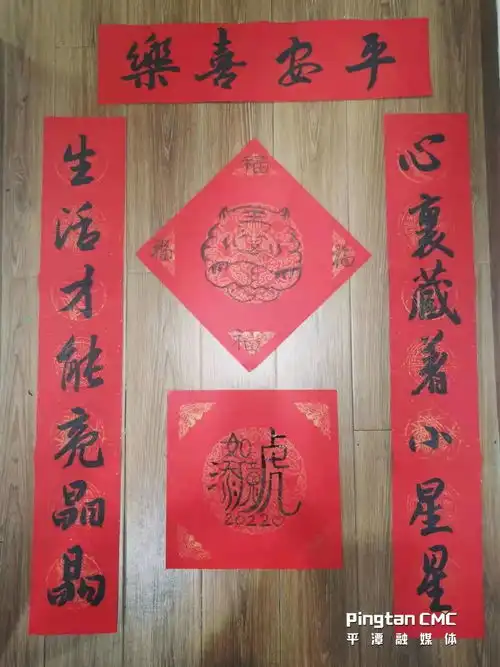 平安喜樂
心裏藏著小星星
生活才能亮晶晶
福
王
福
福
福
如
虎
Pingtan CMC
平潭融媒体